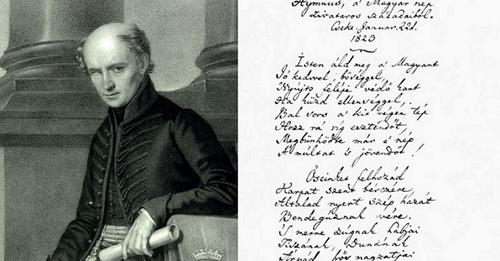 Hymnus, a' Magyar nép
zivataros századaiból.
Cseke Januar 22d.
1823
Isten áldd meg a Magyart
Jó kedvvel, bőséggel,
Nyújts feléje védő kart
Ha küzd ellenséggel,
Bal sors a kit régen tép
Hozz rá víg esztendőt,
Megbünhődte már e' nép
A' múltat 's jövendőt!
Őseinket felhozád
Kárpát szent bérczére,
Általad nyert szép hazát
Bendegúznak vére.
'S merre zúgnak habjai
Tiszának, Dunának
Árpád hős magzatjai